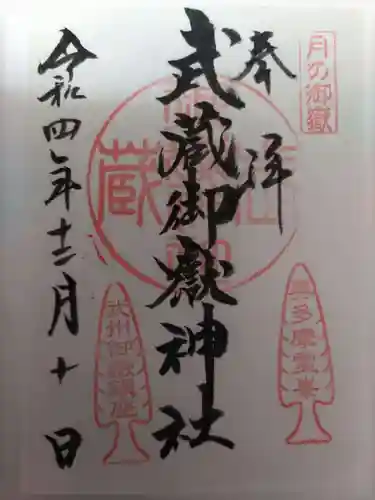 月の御嶽
奉拝
奥多摩霊峯
武蔵御嶽神社
蔵
武州御嶽鎮座
令和四年十二月十日